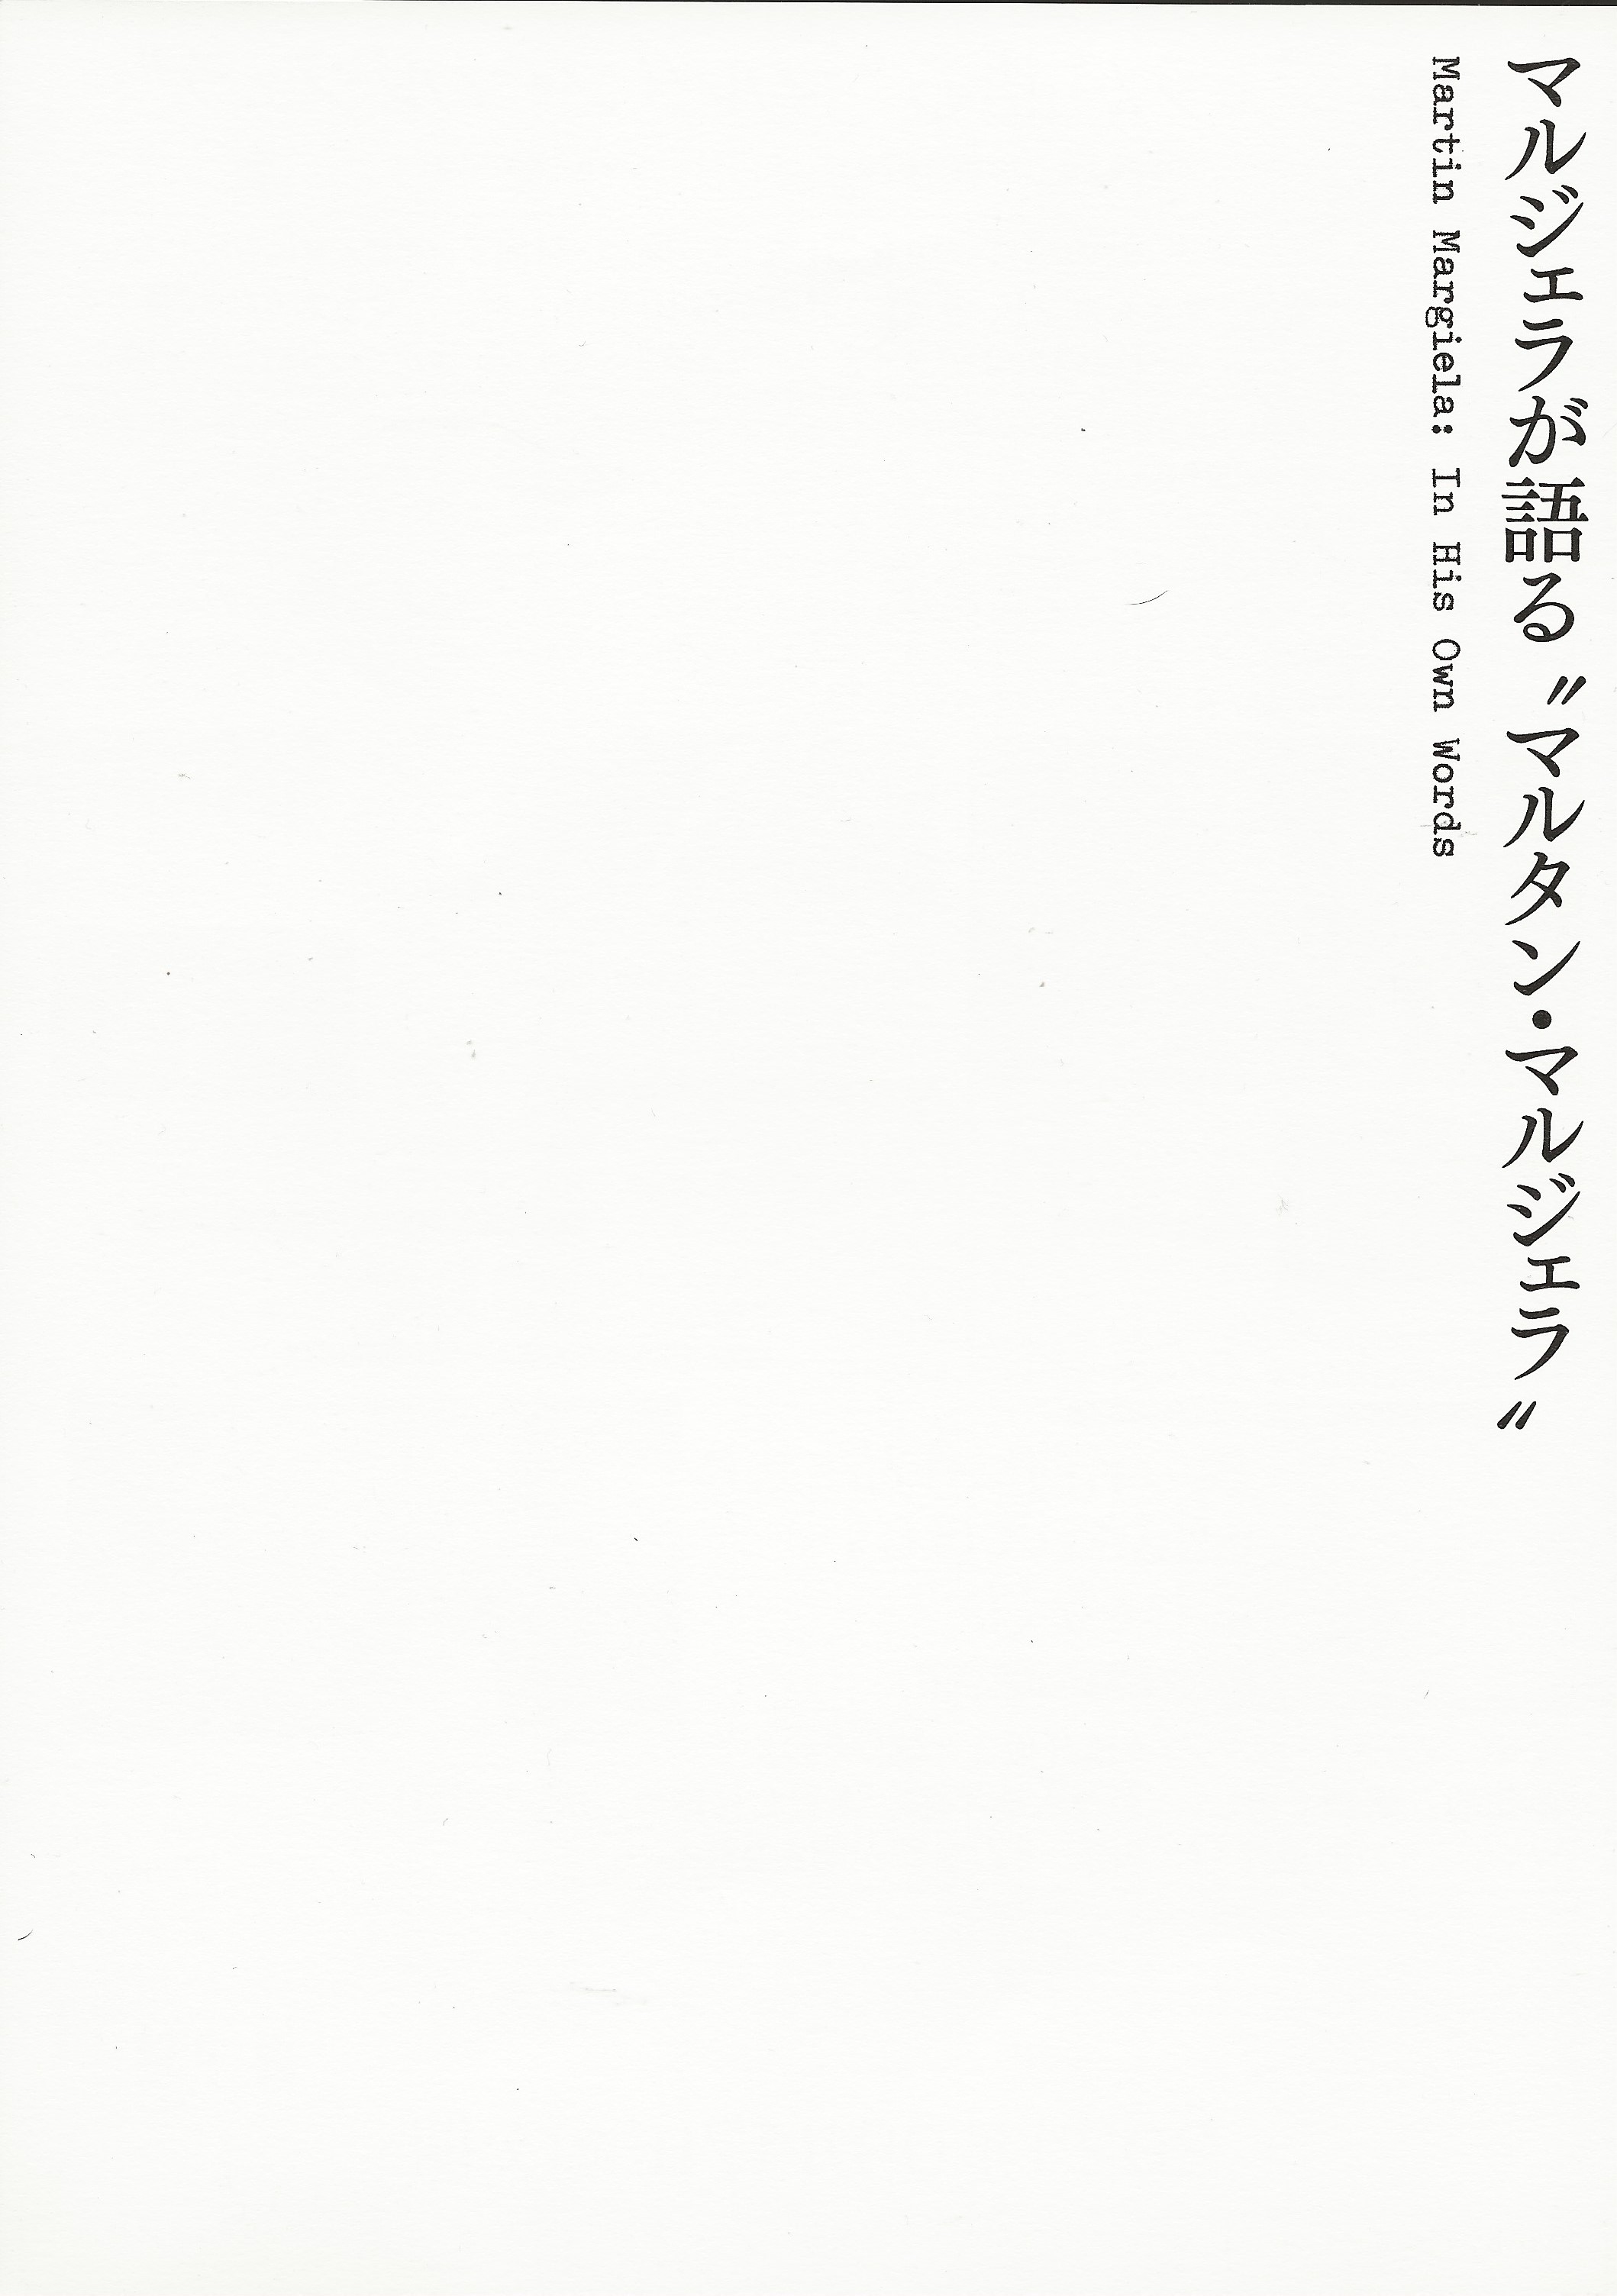 マルジェラが語る〝マルタン・マルジェラ〟
Martin Margiela: In His Own Words